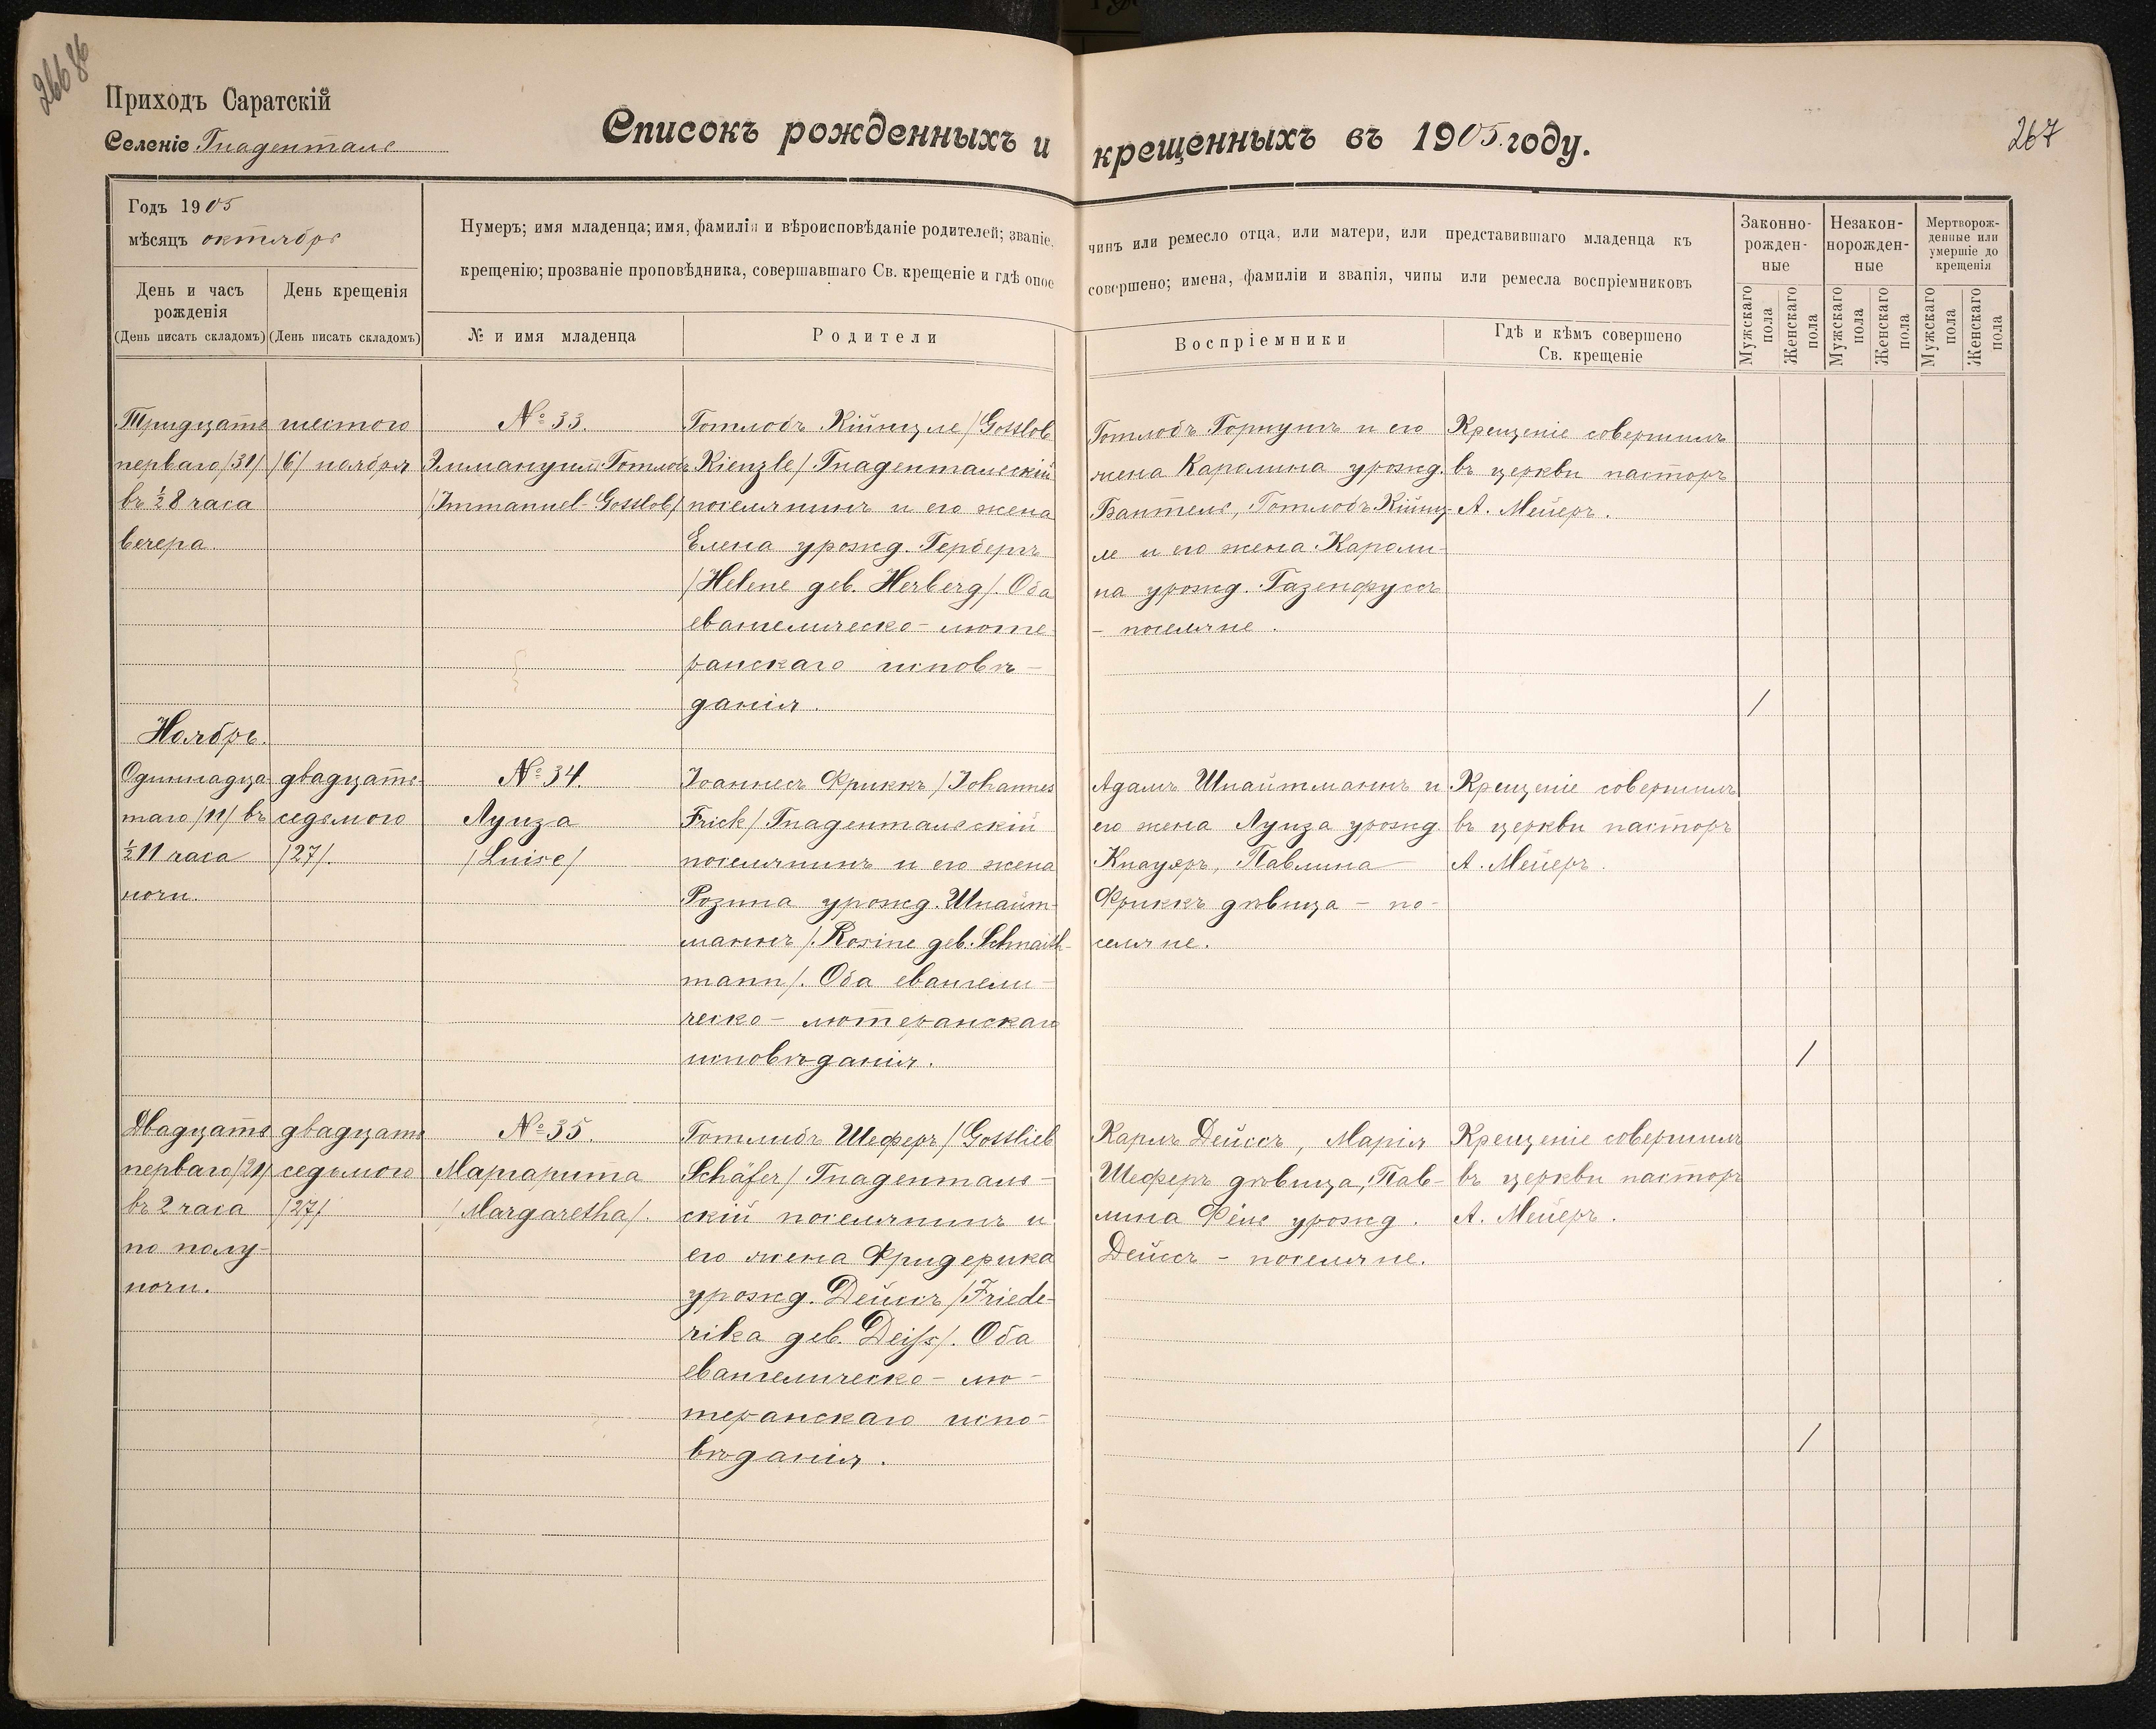 266 86
Приходъ Саратскій
Селеніе Гнаденталь
Списокъ рожденныхъ и крещенныхъ въ 1905. году.
267
Годъ 1905
мѣсяцъ октябрь
День и часъ
рожденія
(День писать складомъ)
День крещенія
(День писать складомъ)
Нумеръ; имя младенца; имя, фамилія и вѣроисповѣданіе родителей; званіе,
крещенію; прозваніе проповѣдника, совершавшаго Св. крещеніе и гдѣ оное
№ и имя младенца
Родители
чинъ или ремесло отца, или матери, или представившаго младенца къ
совершено; имена, фамиліи и званія, чины или ремесла воспріемниковъ
Воспріемники
Гдѣ и кѣмъ совершено
Св. крещеніе
Законно-
рожден-
ные
Незакон-
норожден-
ные
Мертворож-
денные или
умершіе до
крещенія
Мужскаго
пола
Женскаго
пола
Мужскаго
пола
Женскаго
пола
Мужскаго
пола
Женскаго
пола
Тридцать
перваго /31/
въ ½ 8 часа
вечера.
шестого
/6/ ноября
№ 33.
Эммануилъ-Готлобъ
/Immanuel-Gottlob/
Готлобъ Кійнцле /Gottlob
Kienzle/ Гнадентальскій
поселянинъ и его жена
Елена урожд. Гербергъ
/Helene geb. Herberg/. Оба
евангелическо-люте-
ранскаго исповѣ-
данія.
Готлобъ Горнунгъ и его
жена Каролина урожд.
Бантель, Готлобъ Кійнц-
ле и его жена Кароли-
на урожд. Газенфусъ
- поселяне.
Крещеніе совершилъ
въ церкви пасторъ
А. Мейеръ.
/
Ноябрь.
Одиннадца-
таго /11/ въ
½ 11 часа
ночи.
двадцать
седьмого
/27/.
№ 34.
Луиза
/Luise/
Іоаннесъ Фриккъ /Johannes
Frick/ Гнадентальскій
поселянинъ и его жена
Розина урожд. Шнайт-
маннъ /Rosine geb. Schnaith-
mann/. Оба евангели-
ческо-лютеранскаго
исповѣданія.
Адамъ Шнайтманнъ и
его жена Луиза урожд.
Кнауэръ, Павлина
Фриккъ дѣвица - по-
селяне.
Крещеніе совершилъ
въ церкви пасторъ
А. Мейеръ.
/
Двадцать
перваго /21/
въ 2 часа
по полу-
ночи.
двадцать
седьмого
/27/
№ 35.
Маргарита
/Margaretha/.
Готлибъ Шеферъ /Gottlieb
Schäfer/ Гнаденталь-
скій поселянинъ и
его жена Фридерика
урожд. Дейссъ /Friede-
rika geb. Deiss/. Оба
евангелическо-лю-
теранскаго испо-
вѣданія.
Карлъ Дейссъ, Марія
Шеферъ дѣвица, Пав-
лина Фёль урожд.
Дейссъ - поселяне.
Крещеніе совершилъ
въ церкви пасторъ
А. Мейеръ.
/